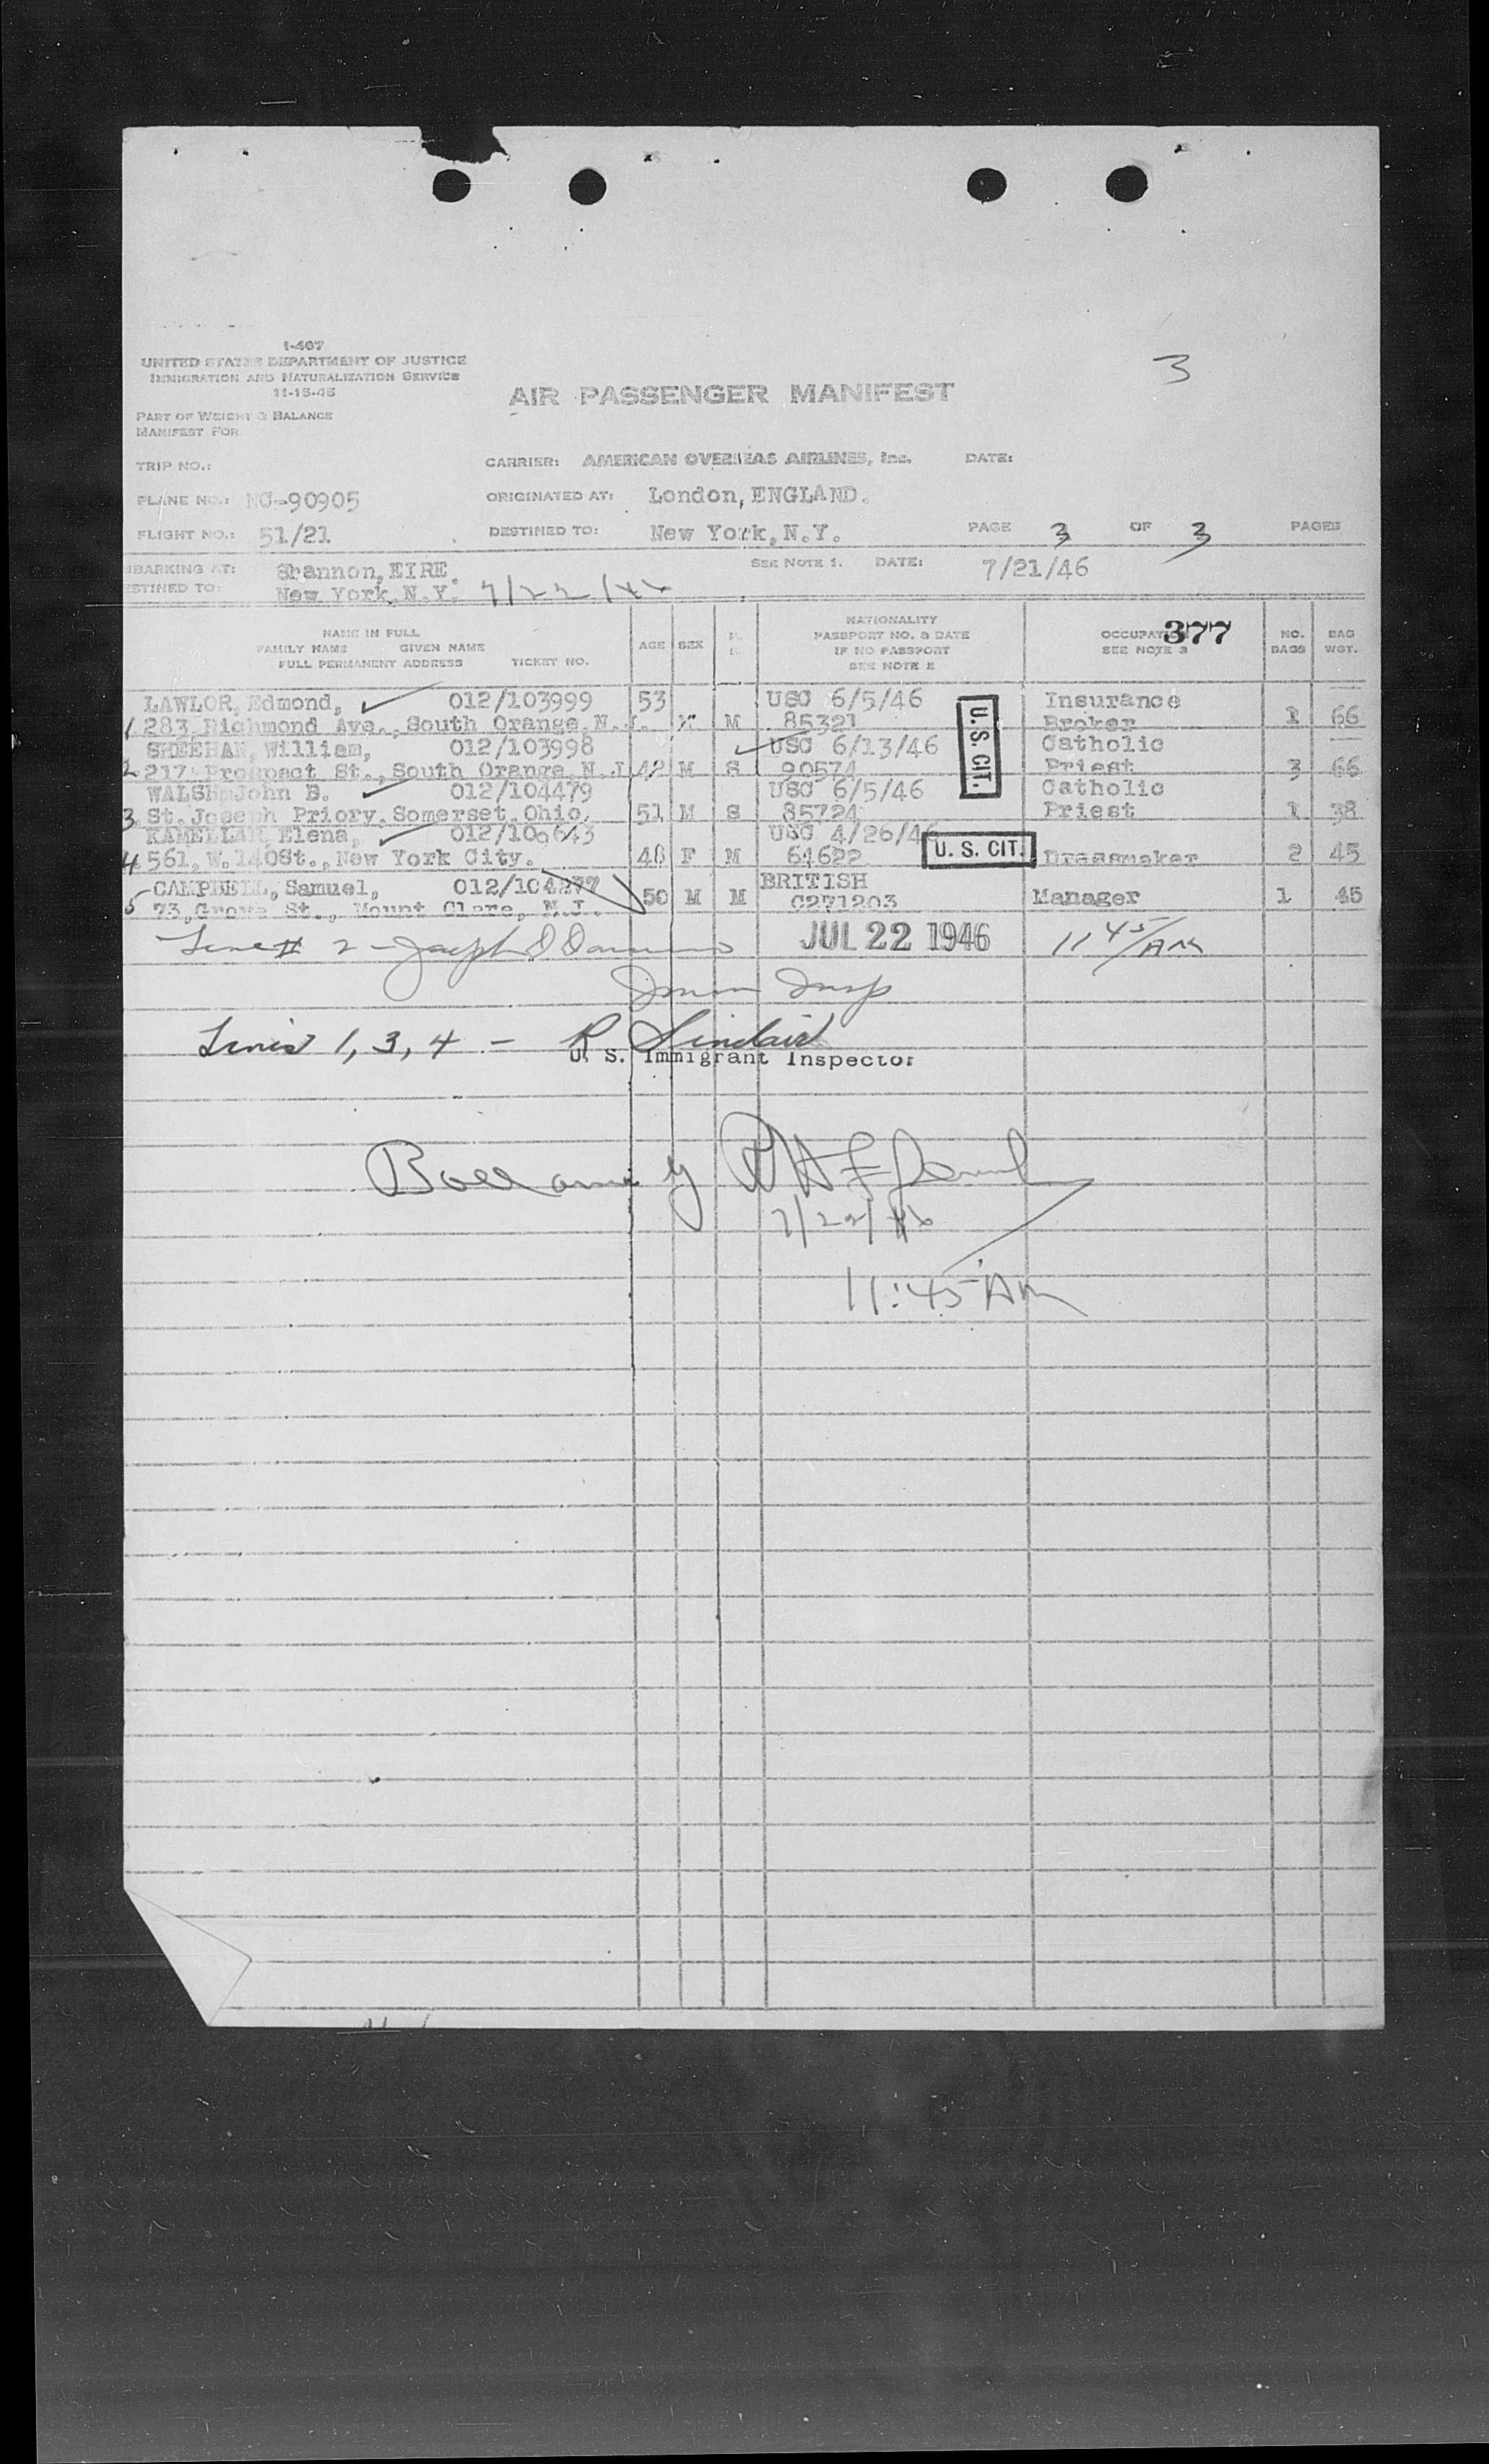 3
I-467
UNITED STATES DEPARTMENT OF JUSTICE
IMMIGRATION AND NATURALIZATION SERVICE
11-15-45
AIR PASSENGER MANIFEST
PART OF WEIGHT & BALANCE
MANIFEST FOR
TRIP NO.: CARRIER: AMERICAN OVERSEAS AIRLINES, Inc. DATE:
PLANE NO.: NC-90905 ORIGINATED AT: London, ENGLAND.
FLIGHT NO.: 51/21 DESTINED TO: New York, N.Y. PAGE 3 OF 3 PAGES
MBARKING AT: Shannon, EIRE. SEE NOTE 1. DATE: 7/21/46
STINED TO: New York, N.Y. 7/22/46
NAME IN FULL
FAMILY NAME GIVEN NAME
FULL PERMANENT ADDRESS TICKET NO.
AGE SEX
NATIONALITY
PASSPORT NO. & DATE
IF NO PASSPORT
SEE NOTE 2
377
SEE NOTE 3
NO.
BAGS
BAG
WGT.
LAWLOR, Edmond, 012/103999 53 USC 6/5/46 Insurance
1 283, Richmond Ave., South Orange, N.J. M M 85321 Broker 1 66
SHEEHAN, William, 012/103998 USC 6/13/46 Catholic
2 217 Prospect St., South Orange, N.J 42 M S 90574 Priest 3 66
U. S. CIT.
WALSH John B. 012/104479 USC 6/5/46 Catholic
3 St. Joseph Priory. Somerset. Ohio. 51 M S 85724 Priest 1 38
Elena, USC 4/26/46
4 561, W. 140St., New York City. F M 61622 U. S. CIT. Dressmaker 2 45
CAMPBELL, Samuel, 012/104277 BRITISH
5 73, Grove St., Mount Clare, N.J. 50 M M C271203 Manager 1 45
Line # 2 - Joseph JUL 22 1946 11 45/AM
Imm Insp
Lines 1, 3, 4 - R Sinclair
U. S. Immigrant Inspector
7/22/46
11:45 AM